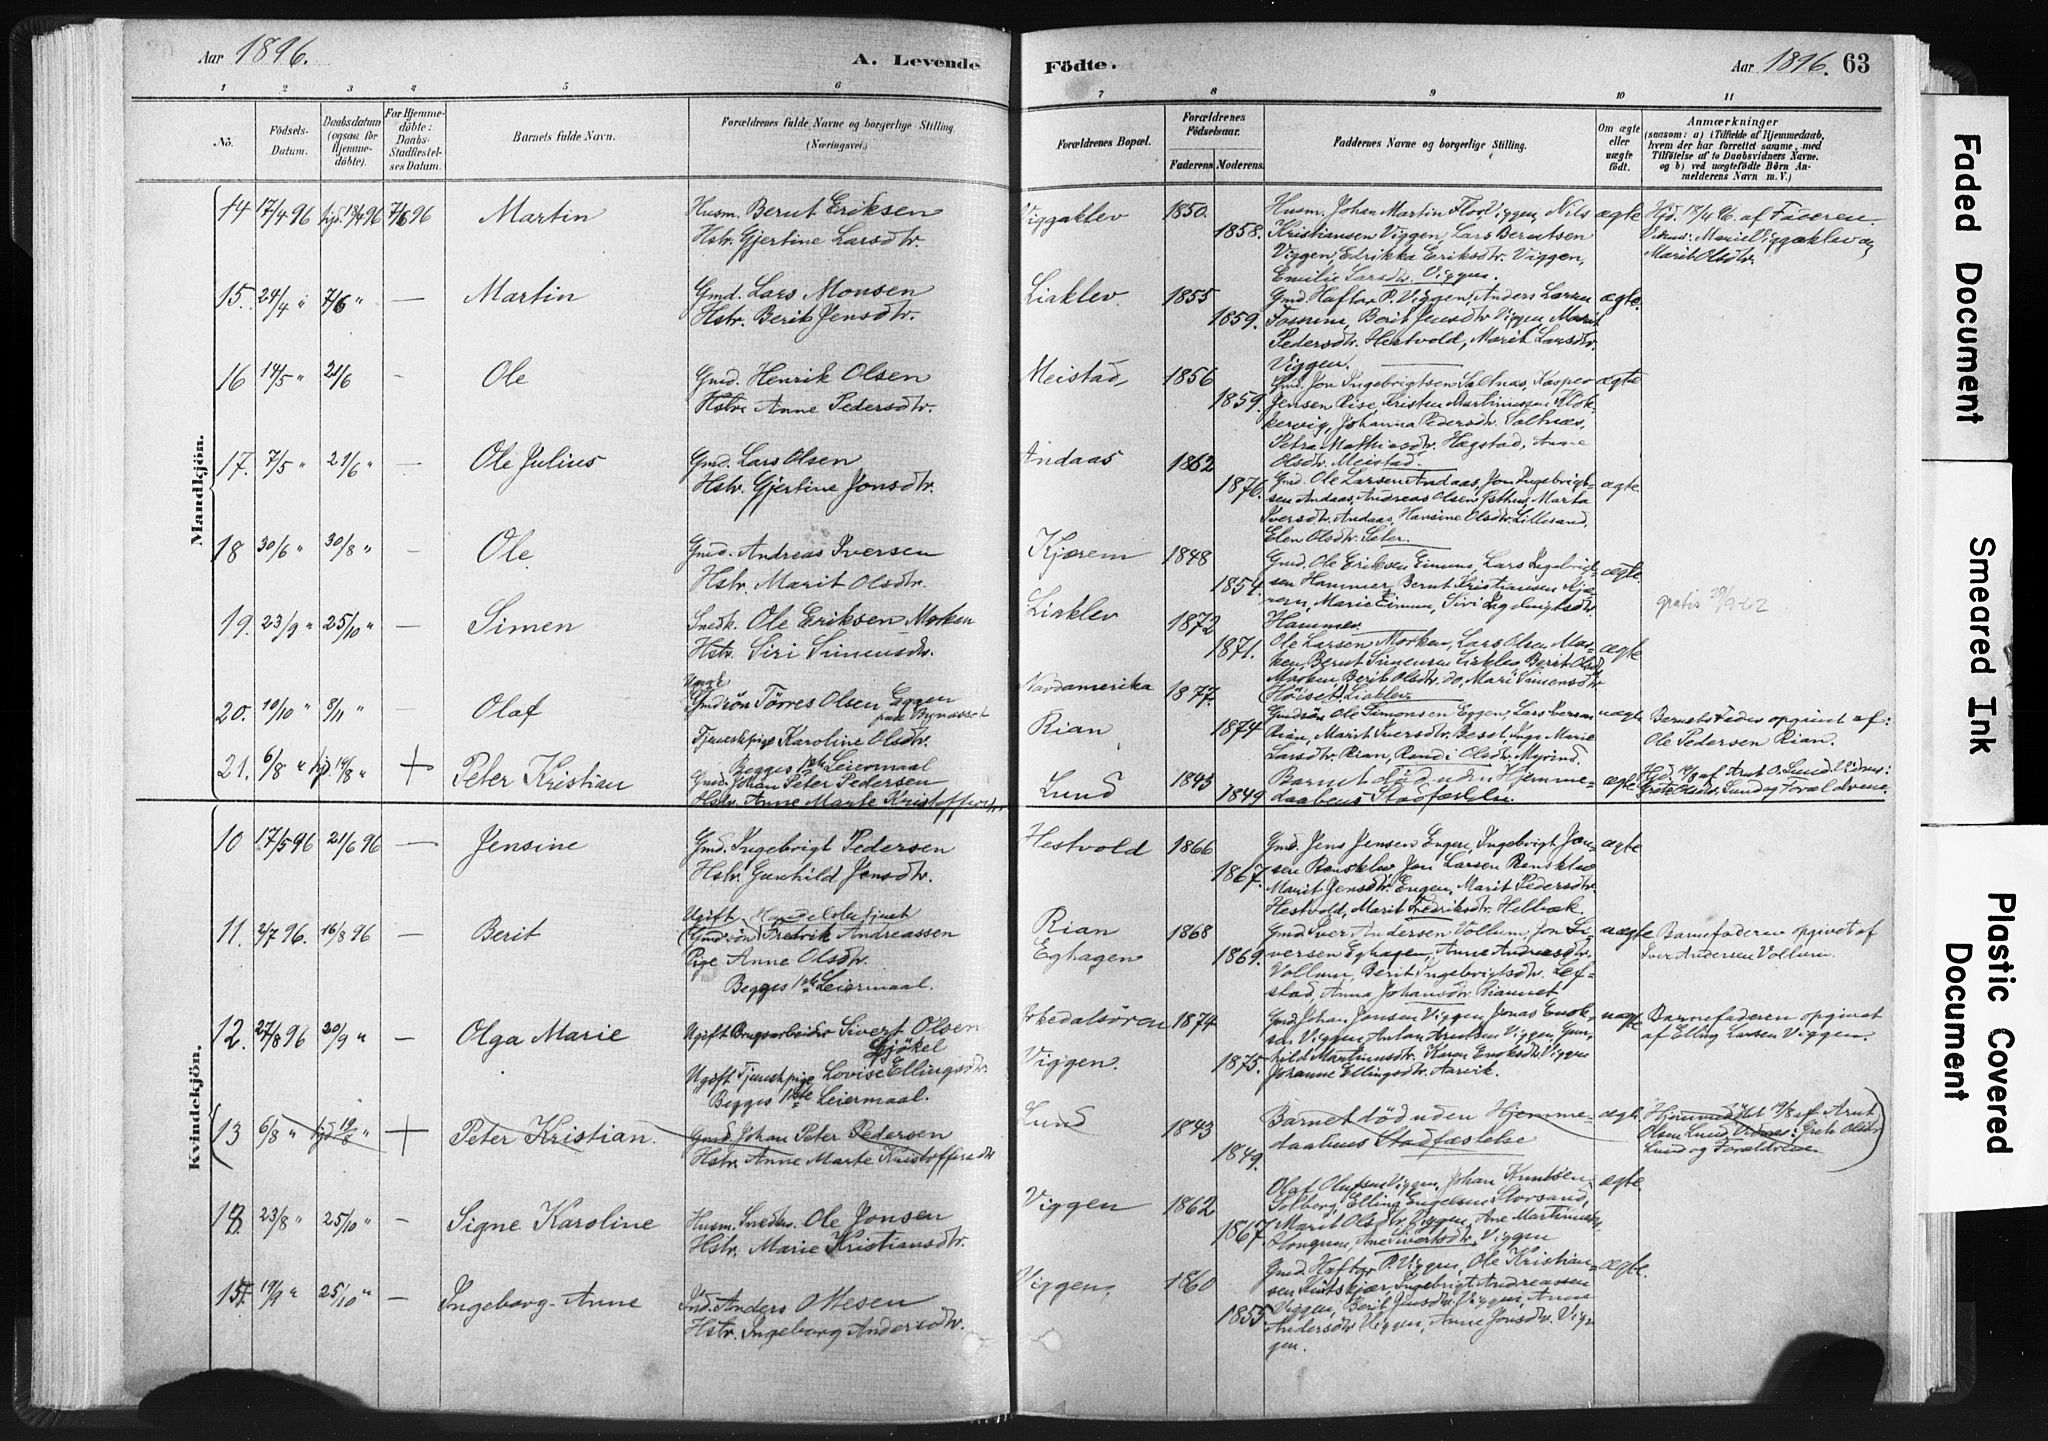 Aar 1896.
A. Levende Födte.
Aar 1896. 63
1 2 3 4 5 6 7 8 9 10 11
No.
Födsels-
Datum.
Daabsdatum
(ogsaa for
Hjemme-
döbte).
For Hjemme-
döbte:
Daabs-
Stadfæstel-
ses Datum.
Barnets fulde Navn.
Forældrenes fulde Navne og borgerlige Stilling
(Næringsvei.)
Forældrenes Bopæl.
Forældrenes
Födselsaar.
Faderens. Moderens.
Faddernes Navne og borgerlige Stilling.
Om ægte
eller
uægte
födt.
Anmærkninger
(saasom: a) i Tilfælde af Hjemmedaab,
hvem der har forrettet samme, med
Tilföielse af to Daabsvidners Navne.
og b) ved uægtefödte Börn An-
melderens Navn m. V.)
Mandkjön.
14 17/4 96 hjd. 18/4 96 7/6 96 Martin
Husm. Berut Eriksen
Hstr. Gjertine Larsdtr.
Viggaklev 1850. 1858.
Husm. Johan Martin Flor, Viggen, Nils
Kristiansen Viggen, Lars Berntsen
Viggen, Edrikka Eriksdtr. Viggen,
Emilie Larsdtr. Viggen.
ægte
Hjd. 18/4 96. af Faderen
Vidner: Marie Viggaklev og
Marit Olsdtr.
15. 24/4 " 7/6 " — Martin
Gmd. Lars Monsen
Hstr. Berit Jensdtr.
Liaklev 1855 1859.
Gmd. Haftor P. Viggen, Anders Larsen
Berit Jensdtr Viggen Marit
Pedersdtr. Hestvold, Marit Larsdtr.
Viggen.
ægte.
16 14/5 " 21/6 — Ole
Gmd. Henrik Olsen
Hstr. Anne Pedersdtr.
Meistad, 1856 1859.
Gmd. Jon Ingebrigtsen Saltnæs, Kasper
Jensen Rise, Kristen Martinussen Klok-
kervig, Johanna Pedersdtr. Saltnæs,
Petra Mathiasdtr. Hægstad, Anne
Olsdtr. Meistad.
ægte
17. 7/5 " 21/6 " — Ole Julius
Gmd. Lars Olsen
Hstr. Gjertine Jonsdtr.
Andaas 1862 1876.
Gmd. Ole Larsen Andaas, Jon Ingebrigt-
sen Andaas, Andreas Olsen Østhus, Marta
Iversdtr. Andaas, Hansine Olsdtr. Lillesand,
Elen Olsdtr. Sæter.
ægte.
18 30/6 " 30/8 " — Ole
Gmd. Andreas Iversen
Hstr. Marit Olsdtr.
Kjærem 1848 1854.
Gmd. Ole Eriksen Eimun, Lars Ingebrigt-
sen Hammer, Bernt Kristianssen Kjæ-
rem, Marie Eimun, Siri Ingebrigtsdtr.
Hammer.
ægte.
gratis 29/9-62
19. 23/9 " 25/10 " — Simen
Snedk. Ole Eriksen Morken
Hstr. Siri Simensdtr.
Liaklev 1872 1871.
Ole Larsen Morken, Lars Olsen Mor-
ken, Bernt Simensen Liaklev Berit Olsdtr
Morken, Berit Olsdtr. do, Mari Simensdtr
Høiset, Liaklev.
ægte
20. 10/10 " 8/11 " — Olaf
Ungk.
Gmdsön Törres Olsen Eggen
paa Bynæsset
Tjenestepige Karoline Olsdtr.
Begges 1ste Leiermaal
Nordamerika
Rian 1877. 1874
Gmdsön Ole Simonsen Eggen, Lars Person
Rian, Marit Iversdtr. Besst, Inge Marie
Larsdtr. Rian, Randi Olsdtr. Myrind
uægte
Barnets Fader opgivet af:
Ole Pedersen Rian.
21. 6/8 " hjd. 19/8 " + Peter Kristian
Gmd. Johan Peter Pedersen
Hstr. Anne Marte Kristoffersdtr
Lund 1843 1849
Barnet död uden Hjemme-
daabens Stadfæstelse.
ægte
Hjd. 19/8 af Arnt O. Lund. Vidner:
Grete Olsdtr. Lund og Forældrene.
Kvindekjön.
10 17/5 96 21/6 96 — Jensine
Gmd. Ingebrigt Pedersen
Hstr. Gunhild Jensdtr.
Hestvold 1866 1867.
Gmd. Jens Jensen Engen, Ingebrigt Jon-
sen Ronsklev, Jon Larsen Rønsklev
Marit Jensdtr. Engen, Marit Pedersdtr
Hestvold, Marit Fredriksdtr. Helbæk.
ægte
11. 2/7 96. 16/8 96 — Berit
Ugift Handelsbetjent
(Gmdsön) Fredrik Andreassen
Pige Anne Olsdtr.
Begges 1ste Leiermaal.
Rian
Eghagen 1868 1869.
Gmd. Iver Andersen Vollum, Jon Si-
versen Eghagen, Anne Andreasdtr.
Vollum, Berit Ingebrigtsdtr. Lef-
stad, Anna Johansdtr. Riannet
uægte
Barnefaderen opgivet af
Iver Andersen Vollum.
12. 27/8 96 20/9 " — Olga Marie
Ugift Brugsarbeider Sivert Olsen
Gjökel
Ugift Tjenestepige Lovise Ellingsdtr.
Begges 1ste Leiermaal.
Orkedalsören
Viggen. 1874 1875.
Gmd. Johan Jonsen Viggen, Jonas Enok-
sen Viggen, Anton Arntsen Viggen, Gun-
hild Martinusdtr. Karen Enoksdtr. Viggen
Johanne Ellingsdtr. Aarvik.
uægte
Barnefaderen opgivet
af Elling Larsen Viggen.
(13 6/8 " hjd 19/8 " + Peter Kristian.
Gmd. Johan Peter Pedersen
Hstr. Anne Marte Kristoffersdtr
Lund 1843 1849.
Barnet död uden Hjemme-
daabens Stadfæstelse
ægte
Hjemmedöbt 19/8 af Arnt
Olsen Lund, Vidner: Grete Olsdtr
Lund og Forældrene)
13. 23/8 " 25/10 " — Signe Karoline
Husm. Snedker. Ole Jonsen
Hstr. Marie Kristiansdtr.
Viggen 1862 1867.
Olaf Olufsen Viggen, Johan Knutsen
Solberg, Elling Engelsen Storsand,
Marit Olsdtr. Viggen, Ane Martinusdtr.
Ane Sivertsdtr. Viggen
ægte.
14. 19/9 " 25/10 " — Ingeborg Anne
Ind. Anders Ottesen
Hstr. Ingeborg Andersdtr.
Viggen, 1860 1855
Gmd. Haftor P. Viggen, Ole Kristian-
sen Ingebrigt Andreassen
Viggen, Berit Jensdtr. Viggen, Anne
Andersdtr Viggen, Anne Jonsdtr. Vig-
gen.
ægte.
Faded Document
Smeared Ink
Plastic Covered
Document